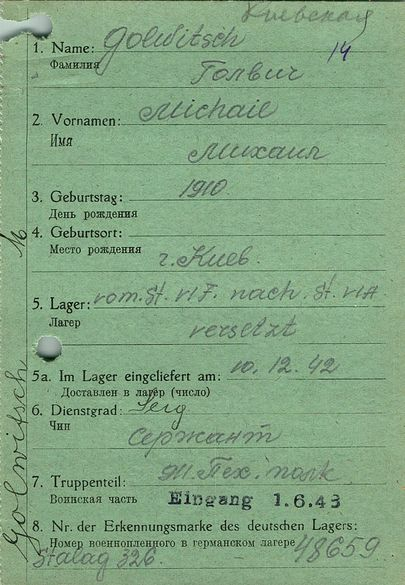 Киевская
14
1. Name: Golwitsch
Фамилия
Голвич
2. Vornamen: Michail
Имя
Михаил
3. Geburtstag: 1910.
День рождения
4. Geburtsort:
Место рождения
г. Киев.
5. Lager: vom. St. VI F. nach. St. VI A
Лагер
versetzt
5a. Im Lager eingeliefert am: 10. 12. 42
Доставлен в лагер (число)
6. Dienstgrad: Serg
Чин
Сержант
7. Truppenteil: Пех. полк
Воинская часть Eingang 1.6.43
8. Nr. der Erkennungsmarke des deutschen Lagers:
Номер военнопленного в германском лагере 48659
Stalag 326
Golwitsch M